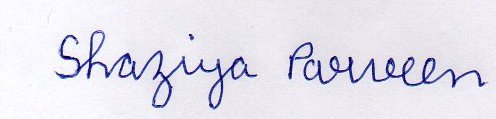 Shaziya Parveen